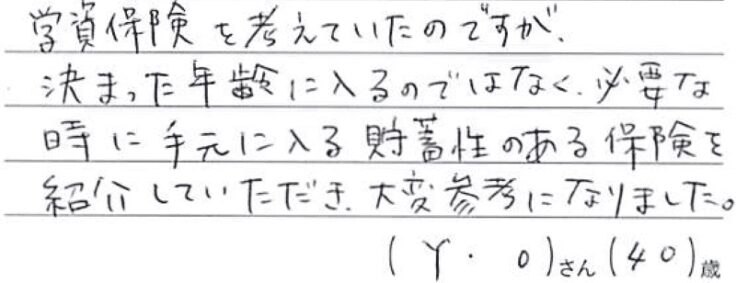 学資保険を考えていたのですが、
決まった年齢に入るのではなく、必要な
時に手元に入る貯蓄性のある保険を
紹介していただき、大変参考になりました。
(Y.O)さん(40)歳